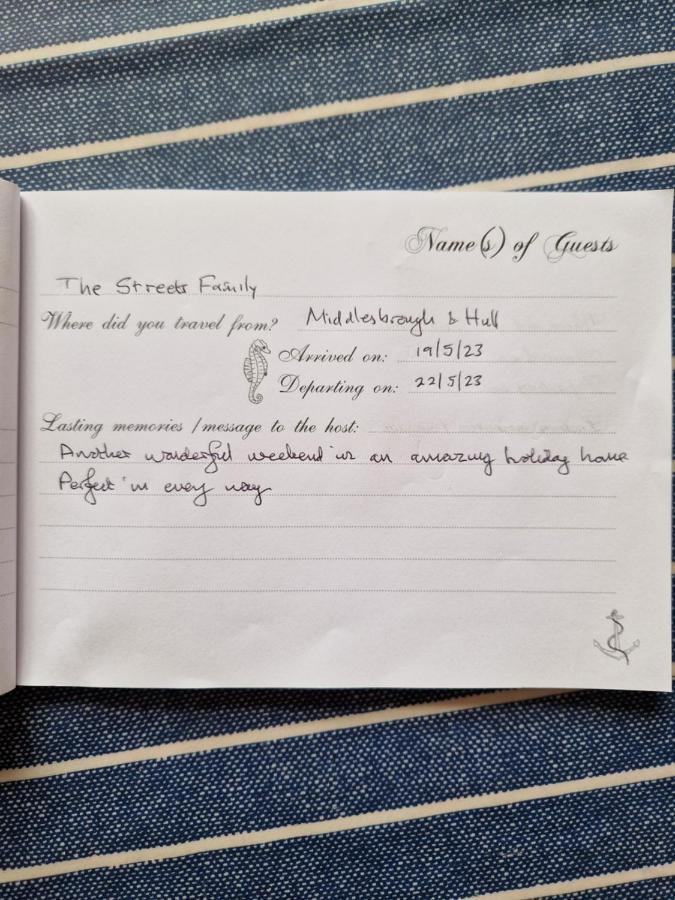 Name(s) of Guests
The Streets Family
Where did you travel from? Middlesbrough & Hull
Arrived on: 19/5/23
Departing on: 22/5/23
Lasting memories / message to the host:
Another wonderful weekend in an amazing holiday home
Perfect in every way